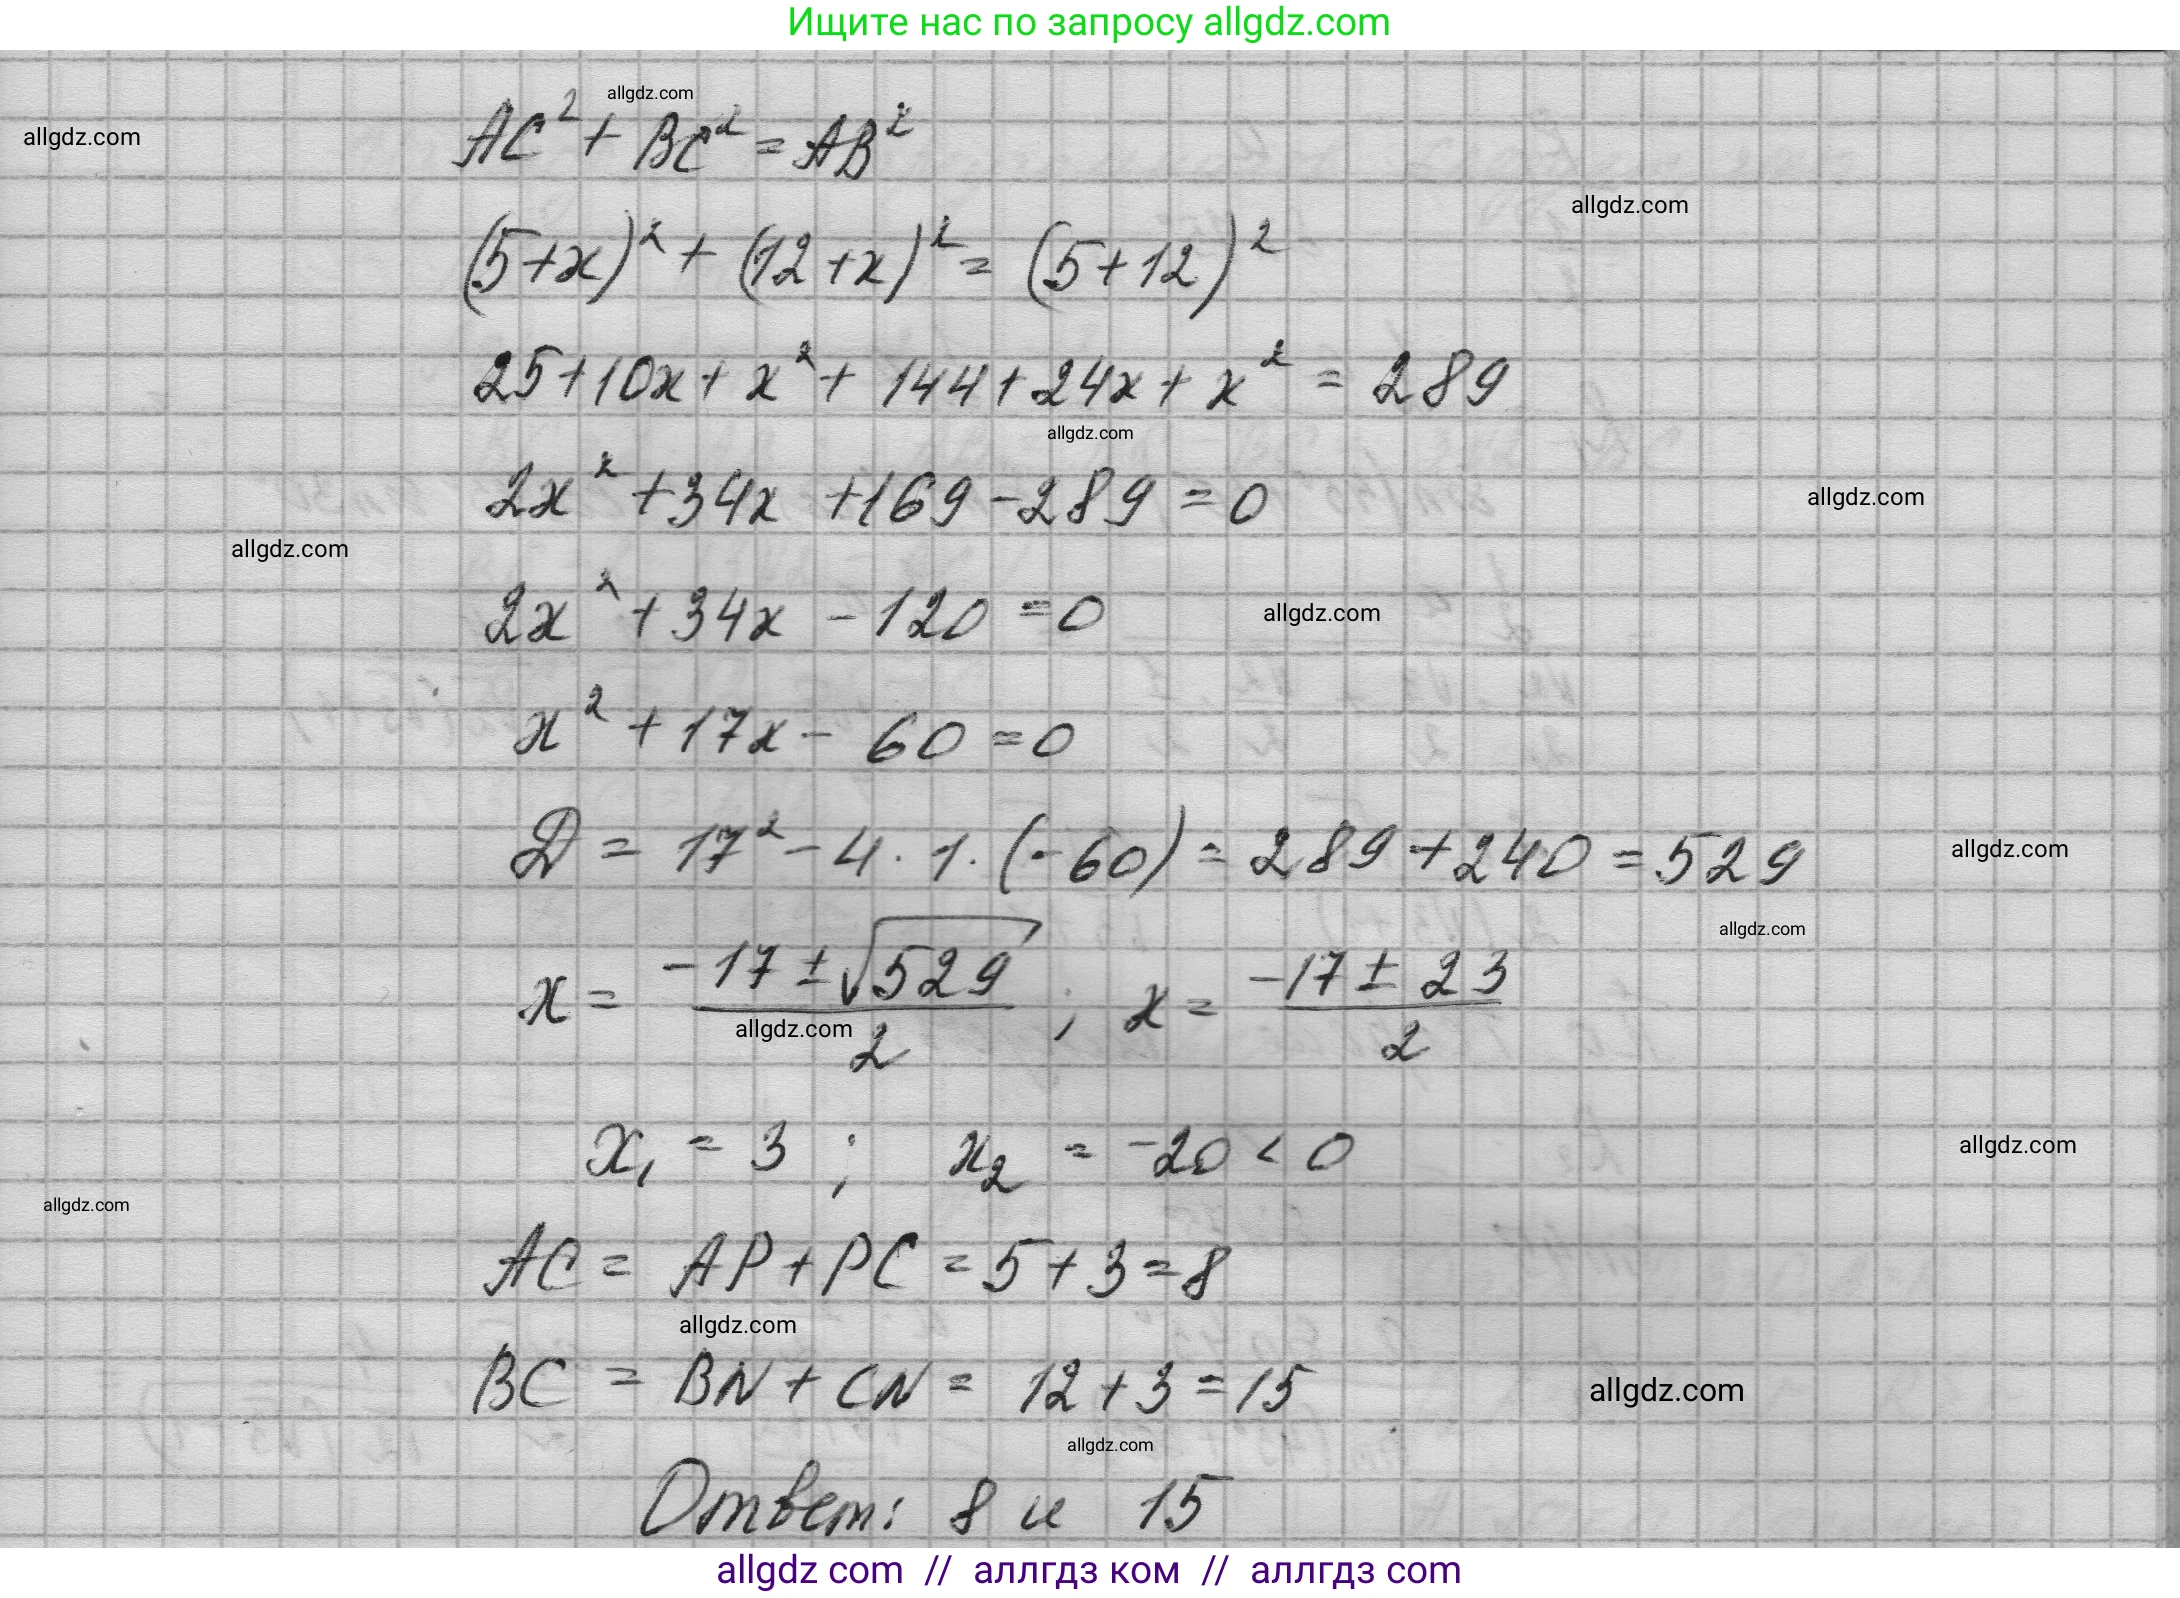 Ищите нас по запросу allgdz.com
allgdz.com
AC² + BC² = AB²
allgdz.com
allgdz.com
(5+x)² + (12+x)² = (5+12)²
25+10x+x²+144+24x+x² = 289
allgdz.com
2x²+34x+169-289=0
allgdz.com
allgdz.com
2x²+34x-120=0
allgdz.com
x²+17x-60=0
D = 17²-4·1·(-60) = 289+240=529
allgdz.com
allgdz.com
x = (-17±√529)/2 ; x = (-17±23)/2
allgdz.com
x₁ = 3 ; x₂ = -20 < 0
allgdz.com
allgdz.com
AC = AP+PC = 5+3=8
allgdz.com
BC = BN+CN = 12+3=15
allgdz.com
allgdz.com
Ответ: 8 и 15
allgdz com // аллгдз ком // аллгдз com